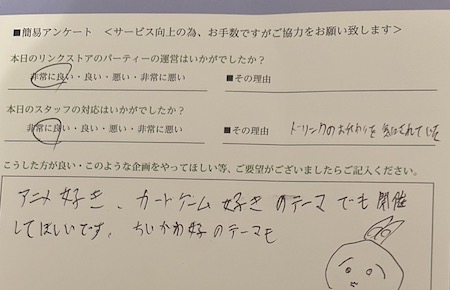 ■簡易アンケート <サービス向上の為、お手数ですがご協力をお願い致します>
本日のリンクストアのパーティーの運営はいかがでしたか?
非常に良い・良い・悪い・非常に悪い ■その理由
本日のスタッフの対応はいかがでしたか?
非常に良い・良い・悪い・非常に悪い ■その理由 ドリンクのおかわりを気にされていた
こうした方が良い・このような企画をやってほしい等、ご要望がございましたらご記入ください。
アニメ好き、カードゲーム好きのテーマでも開催
してほしいです。ちいかわ好のテーマも